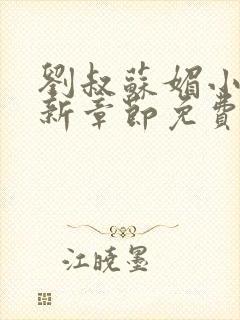 劉叔蘇媚小
新章節免費
江曉墨